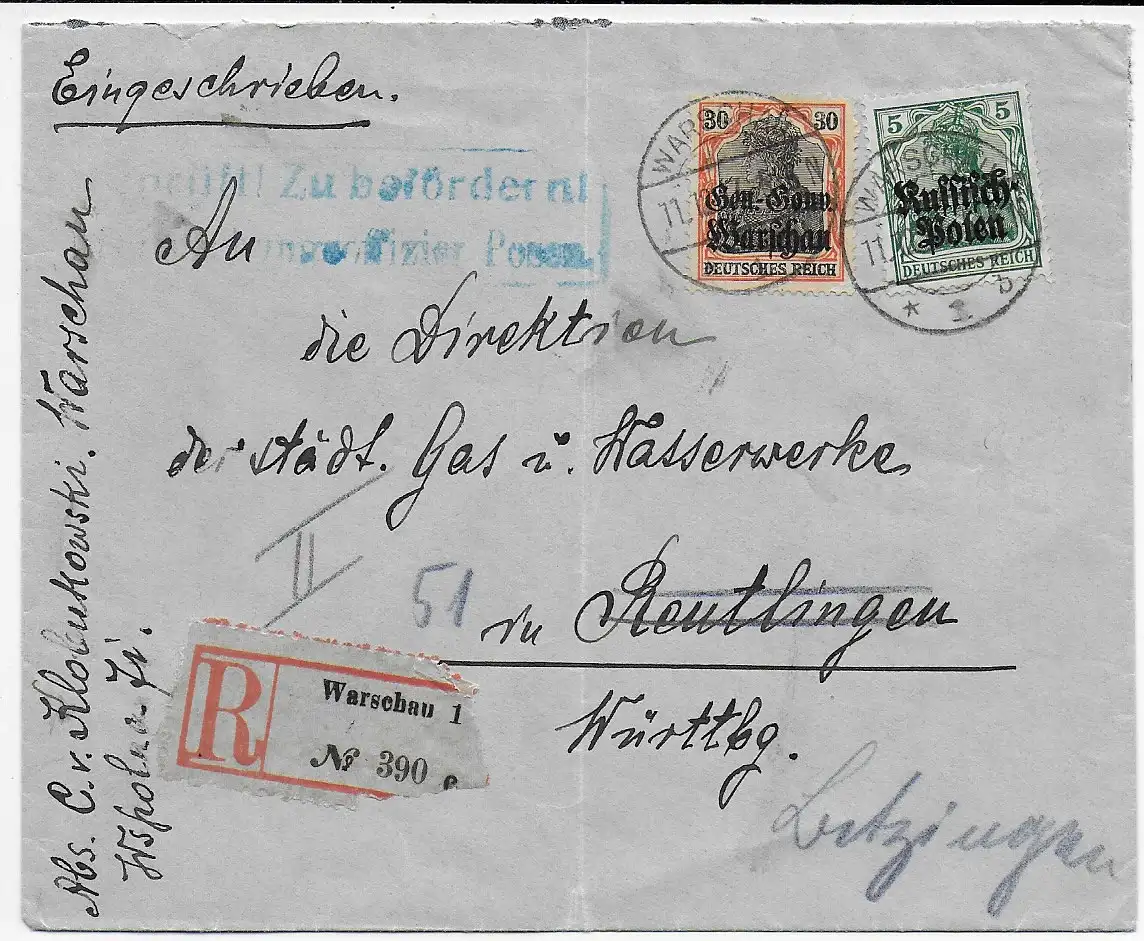 Eingeschrieben.
prüft! Zu befördern!
offizier Posen.
An
die Direktion
der städt. Gas u. Wasserwerke
in Reutlingen
Württbg.
Betzingen
II
51
Abs. C. v. Klobukowski. Warschau
Wspolna
30 30
Gen.-Gouv.
Warschau
DEUTSCHES REICH
5 5
Russisch-
Polen
DEUTSCHES REICH
WARSCHAU
11.
WARSCHAU
11.
* 1 b
R
Warschau 1
№ 390 c